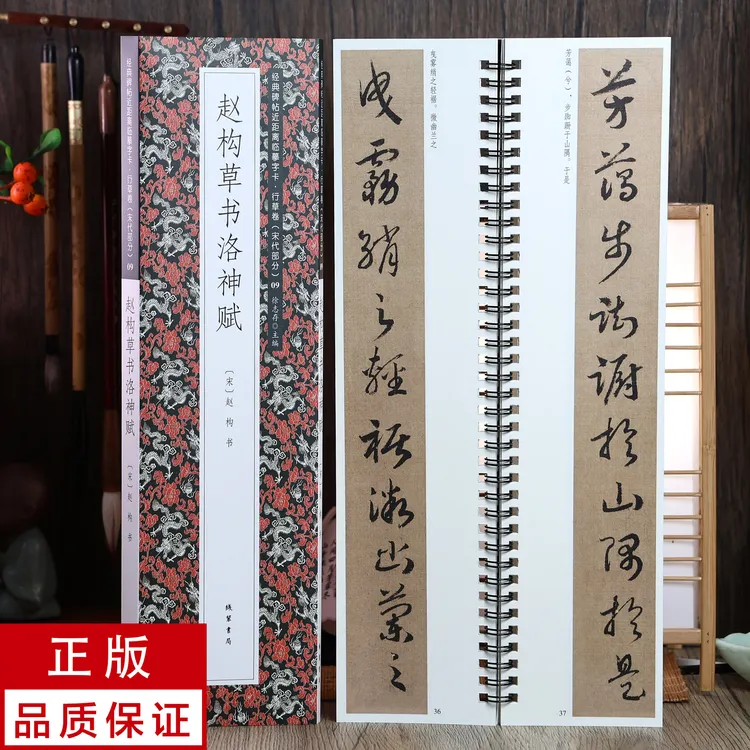 经典碑帖近距离临摹字卡·行草卷（宋代部分）09
赵构草书洛神赋
〔宋〕赵构 书
赵构草书洛神赋
〔宋〕赵构 书
线装书局
经典碑帖近距离临摹字卡·行草卷（宋代部分）09 徐志存○主编
芳蔼（兮），步踟蹰于山隅。于是
芳藹步踟蹰於山隅於是
37
曳雾绡之轻裾。微幽兰之
曳霧綃之輕裾微幽蘭之
36
正版
品质保证